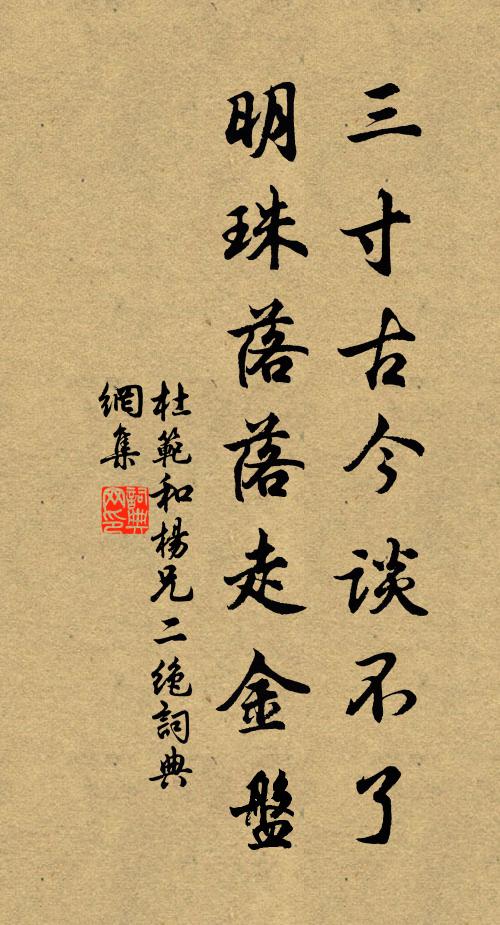 三寸古今談不了
明珠落落走金盤
杜範和楊兄二絶詞典
網集
詞典
网印